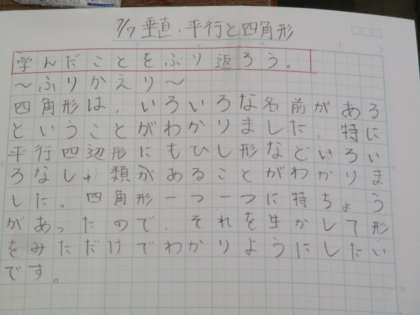 7/7 垂直・平行と四角形
学んだことをふり返ろう。
〜ふりかえり〜
四角形は、いろいろな名前がある
ということがわかりました。特に
平行四辺形にもひし形などいろい
ろなしゅ類があることがわかりま
した。四角形一つ一つに特ちょう
があったので、それを生かして形
をみただけでわかりようにしたい
です。